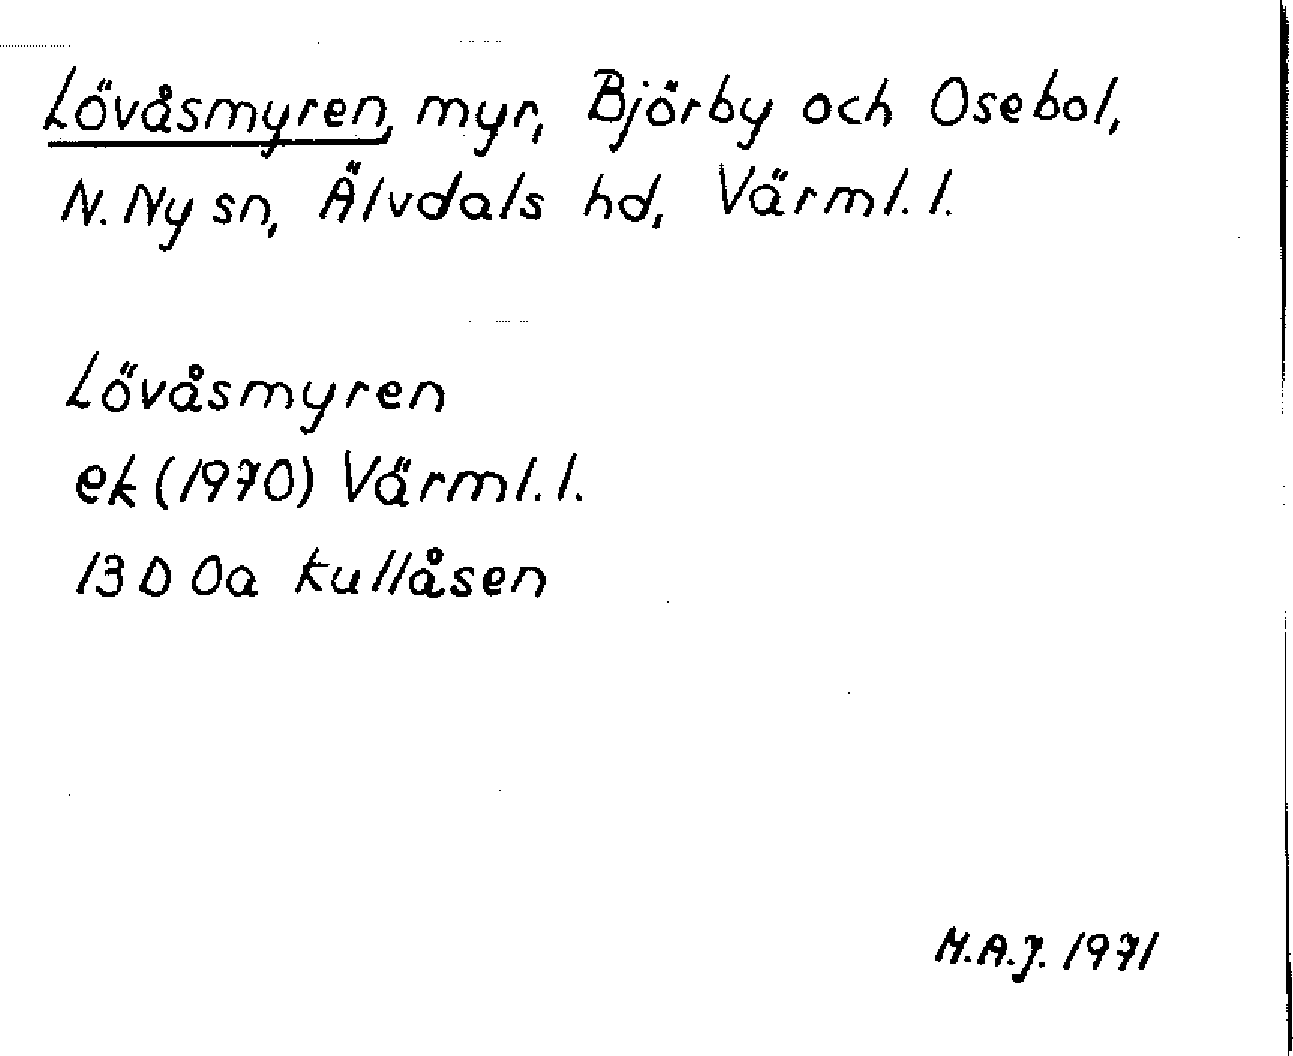 Lövåsmyren, myr, Björby och Osebol,
N. Ny sn, Älvdals hd, Värml. l.
Lövåsmyren
ek (1970) Värml. l.
13 D 0a Kullåsen
M.A.J. 1971